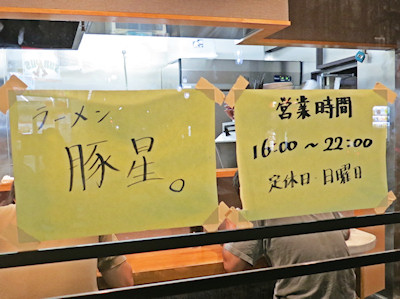 ラーメン
豚星。
営業時間
16:00～22:00
定休日・日曜日